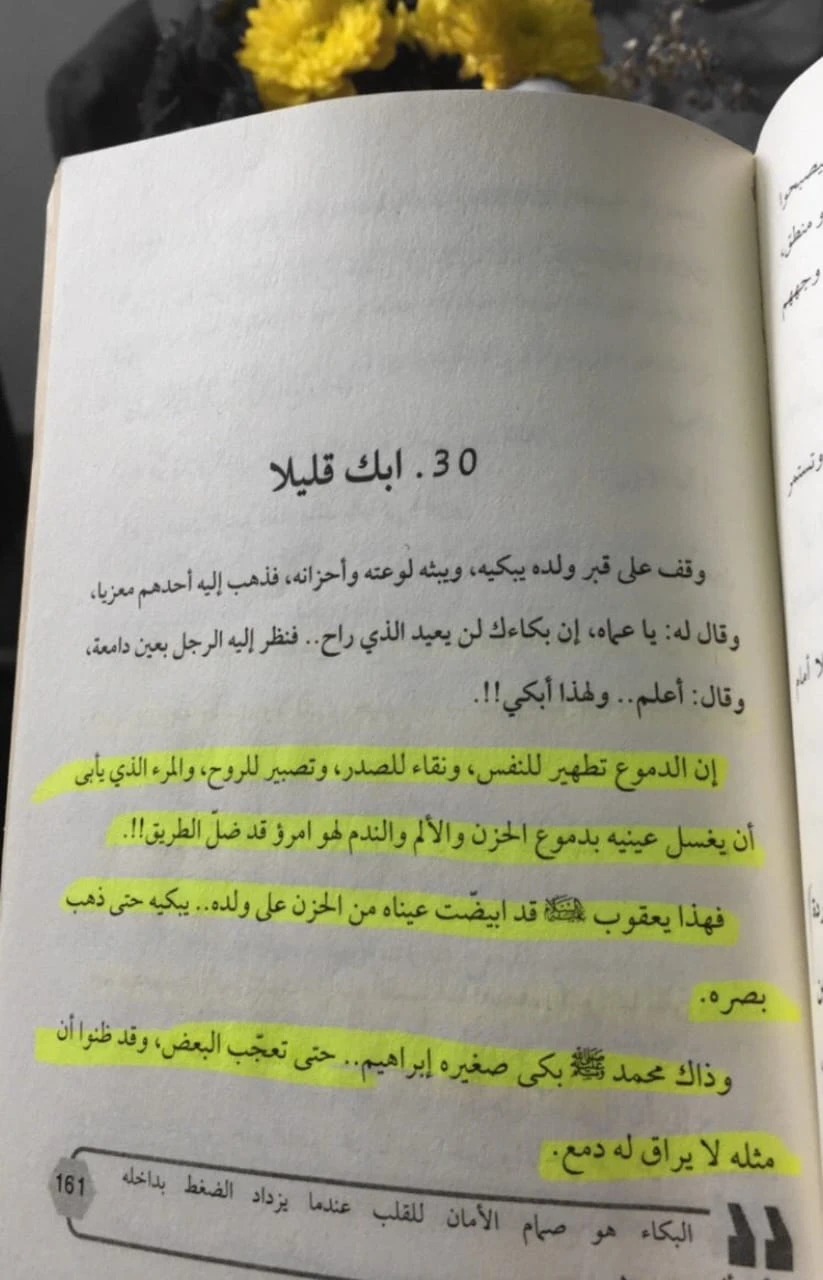 30. ابك قليلا
وقف على قبر ولده يبكيه، ويبثه لوعته وأحزانه، فذهب إليه أحدهم معزيا،
وقال له: يا عماه، إن بكاءك لن يعيد الذي راح.. فنظر إليه الرجل بعين دامعة،
وقال: أعلم.. ولهذا أبكي!!.
إن الدموع تطهير للنفس، ونقاء للصدر، وتصبير للروح، والمرء الذي يأبى
أن يغسل عينيه بدموع الحزن والألم والندم لهو امرؤ قد ضلّ الطريق!!.
فهذا يعقوب قد ابيضّت عيناه من الحزن على ولده.. يبكيه حتى ذهب
بصره.
وذاك محمد ﷺ بكى صغيره إبراهيم.. حتى تعجّب البعض، وقد ظنوا أن
مثله لا يراق له دمع.
البكاء هو صمام الأمان للقلب عندما يزداد الضغط بداخله
161
يصبحوا
و منطق،
وجههم
وتستمر
لا أمام